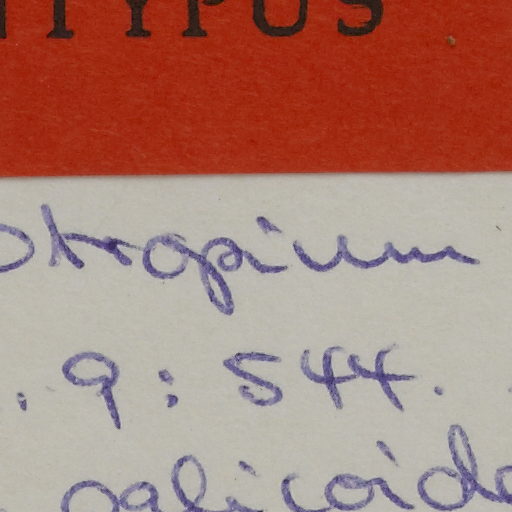 TYPUS
otropium
. 9 : 544.
galicoide